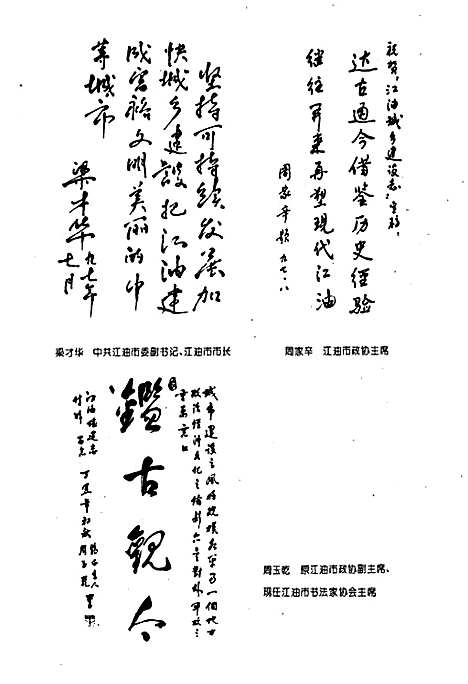 坚持可持续发展加
快城乡建设把江油建
成富裕文明美丽的中
等城市
梁才华 九七年
七月
梁才华 中共江油市委副书记、江油市市长
祝贺《江油城乡建设志》出版:
达古通今借鉴历史经验
继往开来再塑现代江油
周家辛题 九七.八
周家辛 江油市政协主席
城市建设之风貌规模
鑑古观今
江油城建志
丁丑年初秋 周玉乾
周玉乾 原江油市政协副主席、
现任江油市书法家协会主席